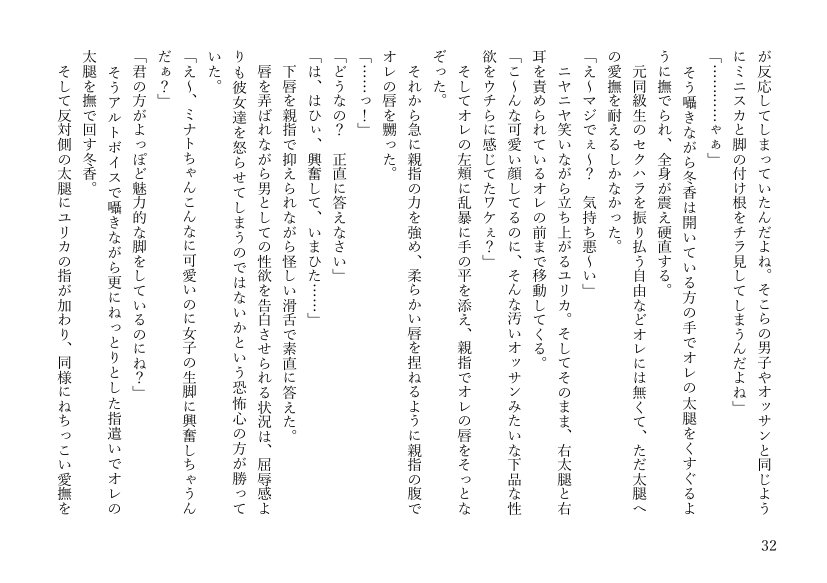 が反応してしまっていたんだよね。そこらの男子やオッサンと同じよう
にミニスカと脚の付け根をチラ見してしまうんだよね」
「…………ゃぁ」
そう囁きながら冬香は開いている方の手でオレの太腿をくすぐるよ
うに撫でられ、全身が震え硬直する。
元同級生のセクハラを振り払う自由などオレには無くて、ただ太腿へ
の愛撫を耐えるしかなかった。
「え～マジでぇ～？　気持ち悪～い」
ニヤニヤ笑いながら立ち上がるユリカ。そしてそのまま、右太腿と右
耳を責められているオレの前まで移動してくる。
「こ～んな可愛い顔してるのに、そんな汚いオッサンみたいな下品な性
欲をウチらに感じてたワケぇ？」
そしてオレの左頬に乱暴に手の平を添え、親指でオレの唇をそっとな
ぞった。
それから急に親指の力を強め、柔らかい唇を捏ねるように親指の腹で
オレの唇を嬲った。
「……っ！」
「どうなの？　正直に答えなさい」
「は、はひぃ、興奮して、いまひた……」
下唇を親指で抑えられながら怪しい滑舌で素直に答えた。
唇を弄ばれながら男としての性欲を告白させられる状況は、屈辱感よ
りも彼女達を怒らせてしまうのではないかという恐怖心の方が勝って
いた。
「え～、ミナトちゃんこんなに可愛いのに女子の生脚に興奮しちゃうん
だぁ？」
「君の方がよっぽど魅力的な脚をしているのにね？」
そうアルトボイスで囁きながら更にねっとりとした指遣いでオレの
太腿を撫で回す冬香。
そして反対側の太腿にユリカの指が加わり、同様にねちっこい愛撫を
32